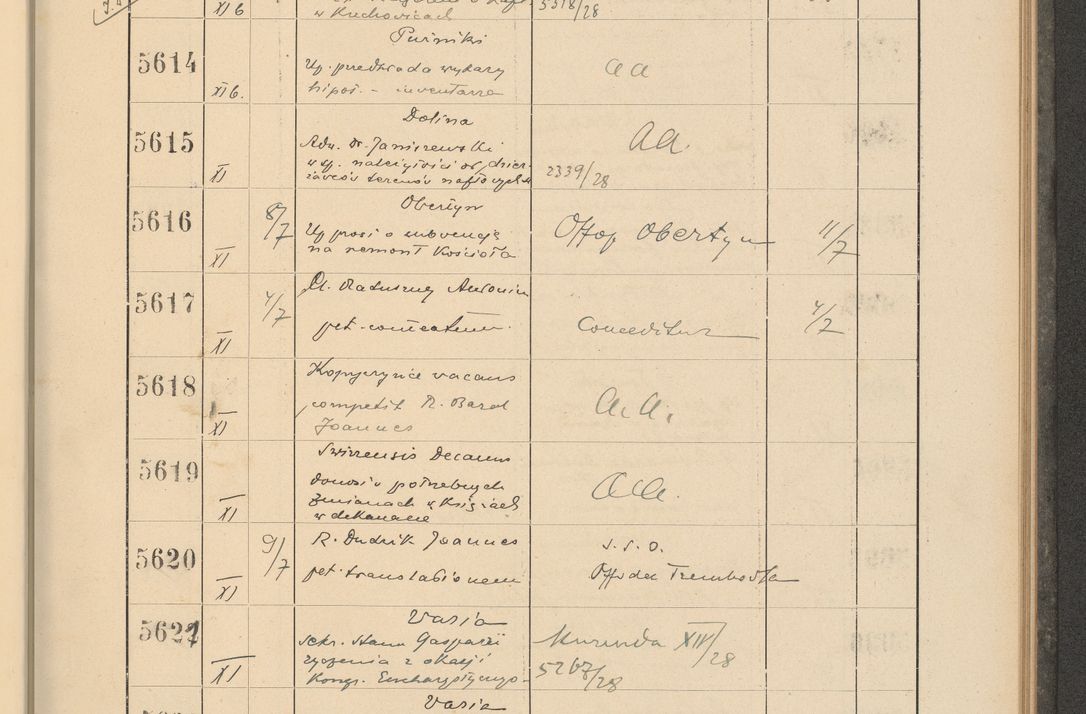 XI 6
w Kuchowicach
5518/28
5614
XI 6.
Puźniki
Up. przedkłada wykazy
hipot. - inwentarza
aa
5615
XI
Dolina
Adw. Dr. Janiszewski
w sp. należytości od dzier-
żawców terenów naftowych
2339/28
aa.
5616
XI
8/7
Obertyn
Up prosi o subwencję
na remont Kościoła
Offop Obertyn
11/7
5617
XI
4/7
R. Raduszny Antonin
pet.
Conceditur
4/7
5618
XI
Kopyczyńce vacans
competit R. Barał
Joannes
a. a.
5619
XI
Swirzensis Decanus
donosi o potrzebnych
zmianach w Księżach
w dekanacie
aa.
5620
XI
9/7
R. Dudzik Joannes
pet. translationem
s. s. o.
Offi dec Trembowla
5621
XI
Varia
Sekr. Stanu Gasparri
życzenia z okazji
Kongr. Eucharystycznego
Kurenda XIV/28
5267/28
Varia